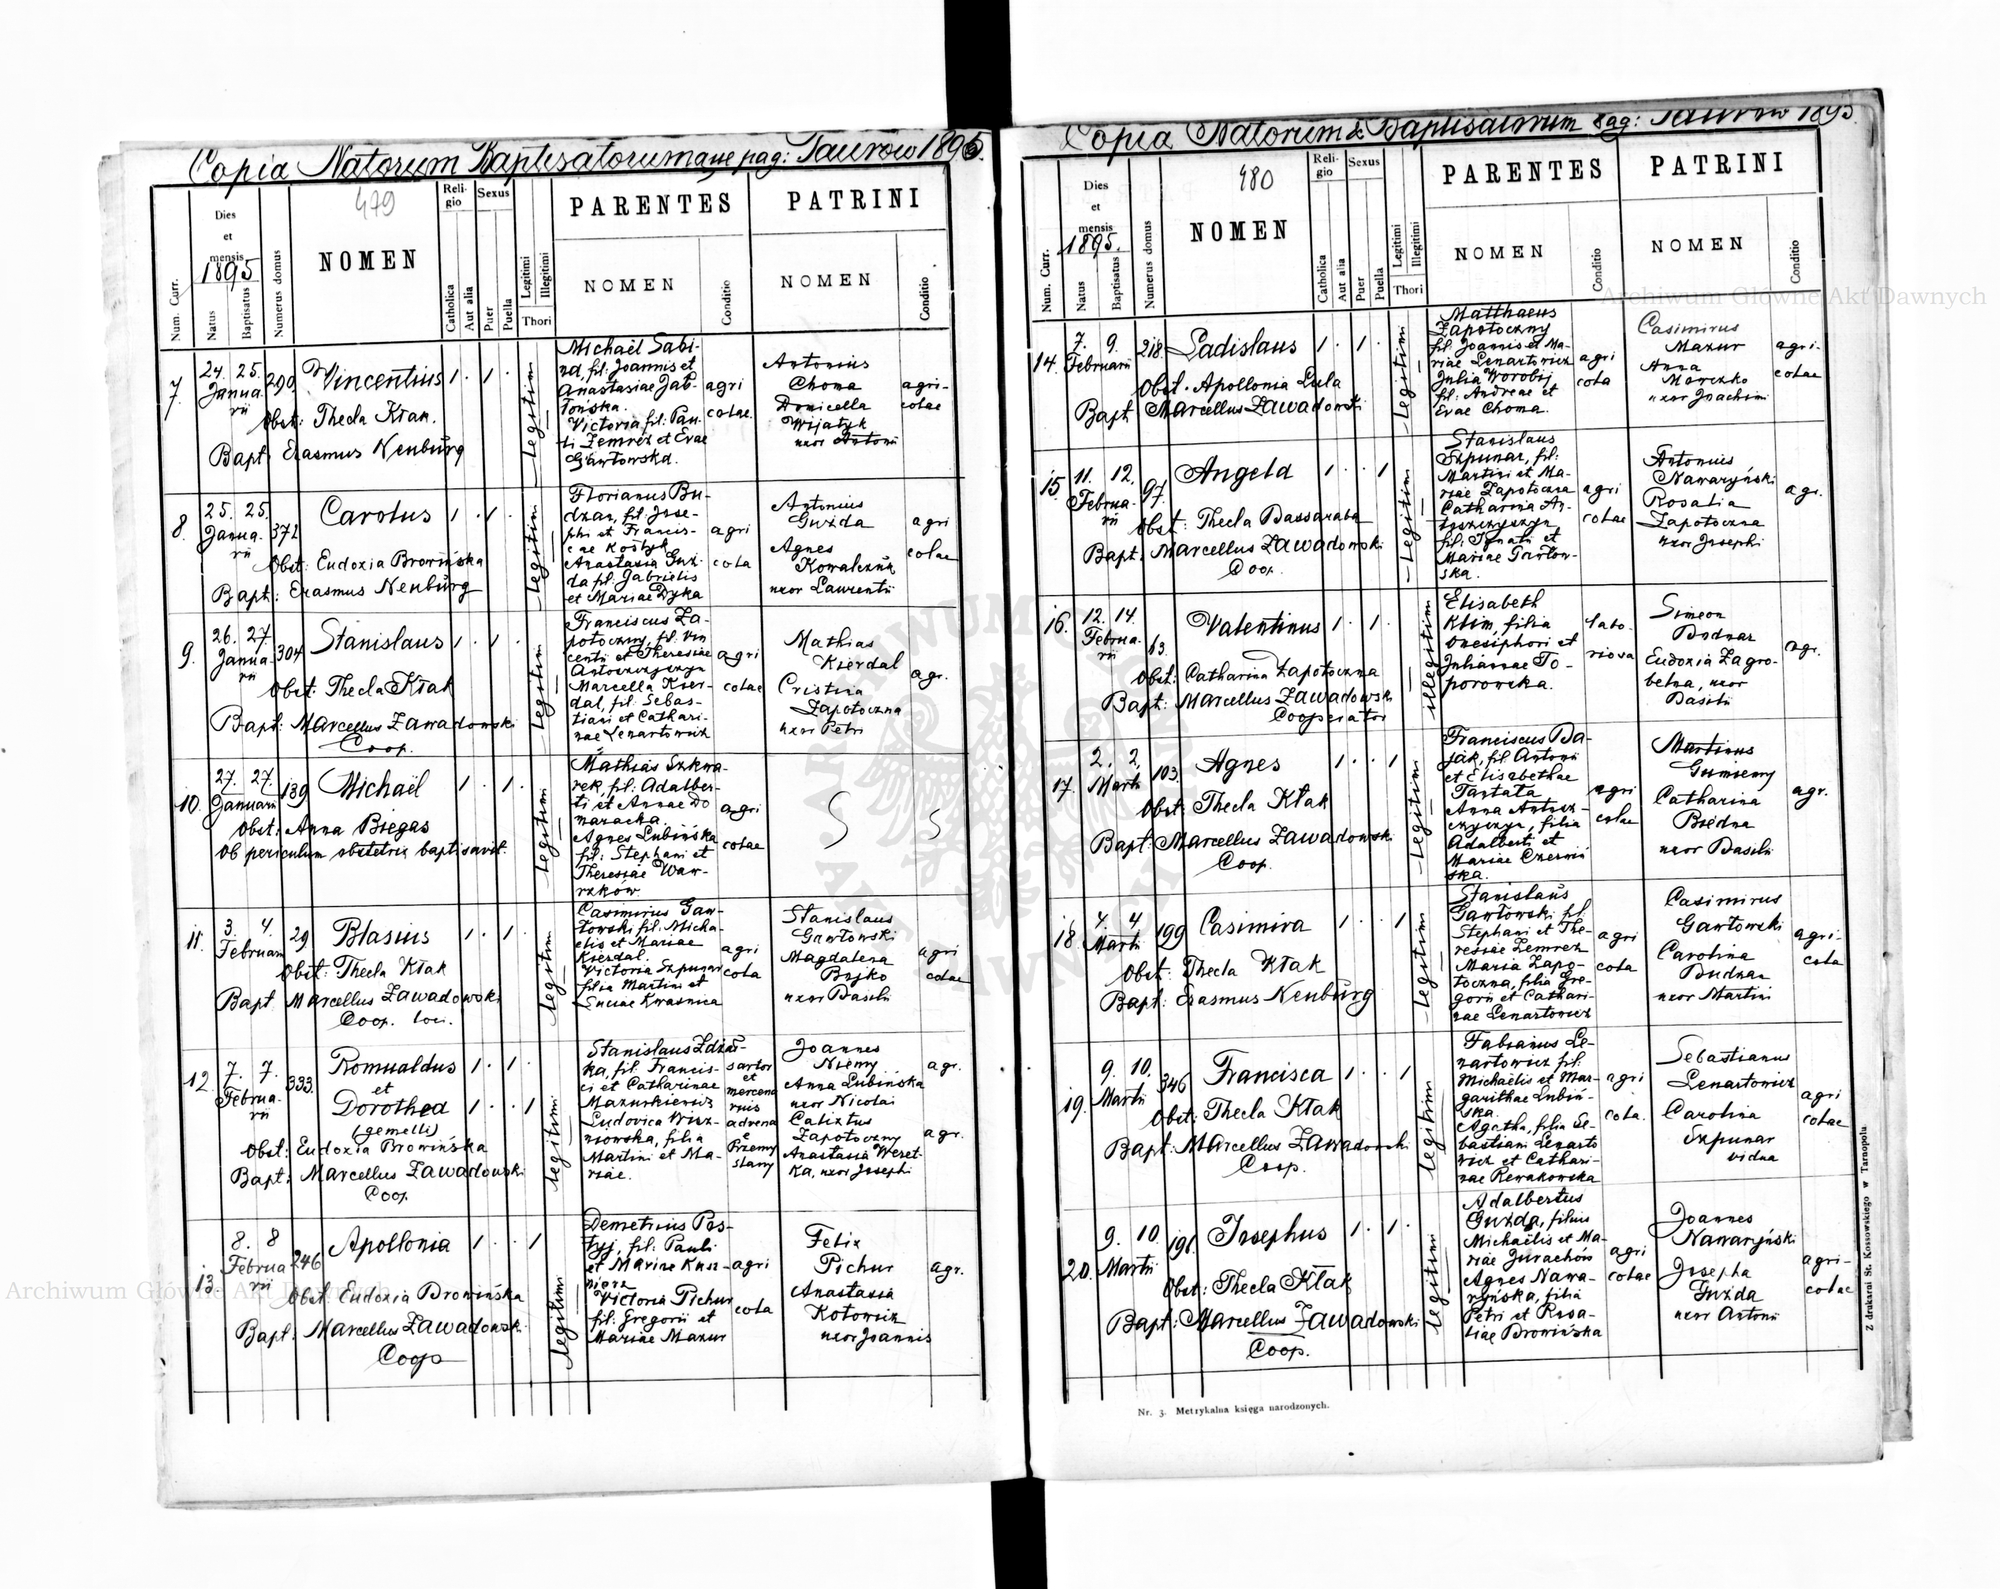 Copia Natorum Baptisatorumque pag: Taurow 1895.
479
Num. Curr.
Dies
et
mensis
1895
Natus
Baptisatus
Numerus domus
NOMEN
Reli-
gio
Catholica
Aut alia
Sexus
Puer
Puella
Legitimi
Illegitimi
Thori
PARENTES
NOMEN
Conditio
PATRINI
NOMEN
Conditio
7.
24. 25.
Janua-
rii
290.
Vincentius
1 . 1 .
Obst: Thecla Kłak.
Bapt: Erasmus Nenburg
legitim
Michaël Sabi-
na, fil: Joannis et
Anastasiae Jab-
łońska.
Victoria fil: Pau-
li Zemrez et Evae
Gawłowska.
agri
colae
Antonius
Choma
Donicella
Wijatyk
uxor Antonii
agri-
colae
8.
25. 25.
Janua-
rii
372
Carolus
1 . 1 .
Obst: Eudoxia Browińska
Bapt: Erasmus Nenburg
legitim
Florianus Bu-
dzar, fil: Jose-
phi et Francis-
cae Kostyk
Anastasia Guz-
da fil: Gabrielis
et Mariae Dyka
agri
cola
Antonius
Guzda
Agnes
Kowalczuk
uxor Laurentii
agri
colae
9.
26. 27
Janua-
rii
304
Stanislaus
1 . 1 .
Obst: Thecla Kłak
Bapt: Marcellus Zawadowski
Coop.
legitim
Franciscus Za-
potoczny, fil. Vin
centii et Theresiae
Antoszczyszyn
Marcella Kier-
dal, fil: Sebas-
tiani et Cathari-
nae Lenartowicz
agri
colae
Mathias
Kierdal
Cristina
Zapotoczna
uxor Petri
agr.
10.
27. 27.
Januarii
139
Michaël
1 . 1 .
Obst: Anna Biegas
Ob periculum obstetrix baptisavit.
legitimi
Mathias Szkwa-
rek, fil: Adalber-
ti et Annae Do
maracka.
Agnes Lubińska
fil: Stephani et
Theresiae Waw-
rzków.
agri
colae
11.
3. 4.
Februarii
29
Blasius
1 . 1 .
Obst: Thecla Kłak
Bapt Marcellus Zawadowski
Coop. loci.
legitim
Casimirus Gaw-
łowski fil: Micha-
elis et Mariae
Kierdal.
Victoria Szpunar
filia Martini et
Luciae Krasnica
agri
cola
Stanislaus
Gawłowski
Magdalena
Bojko
uxor Basilii
agri
colae
12.
7. 7.
Februa-
rii
333.
Romualdus
1 . 1 .
et
Dorothea
1 . . 1
(gemelli)
Obst: Eudoxia Browińska
Bapt: Marcellus Zawadowski
Coop
legitimi
ka, fil. Francis-
ci et Catharinae
Mazurkiewicz
Ludovica Wisz-
niowska, filia
Martini et Ma-
riae.
sartor
et
mercena
rius
advena
e
Przemy
slany
Joannes
Niemy
Anna Lubińska
uxor Nicolai
Calixtus
Zapotoczny
Anastasia Weset-
ka, uxor Josephi
agr.
agr.
13.
8. 8
Februa
rii
246
Apollonia
1 . . 1
Obst Eudoxia Browińska
Bapt: Marcellus Zawadowski
Coop
legitimi
Demetrius Pos-
fil: Pauli
Victoria Pichur
fil: Gregorii et
Mariae Mazur
agri
cola
Felix
Pichur
Anastasia
Kotowicz
uxor Joannis
agr.
Copia Natorum & Baptisatorum pag: Taurow 1895.
480
Num. Curr.
Dies
et
mensis
1895.
Natus
Baptisatus
Numerus domus
NOMEN
Reli-
gio
Catholica
Aut alia
Sexus
Puer
Puella
Legitimi
Illegitimi
Thori
PARENTES
NOMEN
Conditio
PATRINI
NOMEN
Conditio
14.
7. 9.
Februarii
218.
Ladislaus
1 . 1 .
Obst. Apollonia Lula
Bapt. Marcellus Zawadowski
legitim
Matthaeus
Zapotoczny
fil. Joannis et Ma-
riae Lenartowicz
Julia Worobij
fil: Andreae et
Evae Choma.
agri
cola
Casimirus
Mazur
Anna
Morczko
uxor Joachimi
agri-
colae
15.
11. 12.
Februa-
rii
97.
Angela
1 . . 1
Obst: Thecla Bassaraba
Bapt: Marcellus Zawadowski
Coop.
legitim
Stanislaus
Szpunar, fil:
Martini et Ma-
riae Zapotoczna
Catharina An-
toszczyszyn
fil: Ignati et
Mariae Gawłow-
ska.
agri
colae
Antonius
Nawaryński
Rosalia
Zapotoczna
uxor Josephi
agr.
16.
12. 14.
Februa-
rii
13.
Valentinus
1 . 1 .
Obst: Catharina Zapotoczna
Bapt: Marcellus Zawadowski
Cooperator
illegitimi
Elisabeth
Klim, filia
Onesiphori et
Julianae To-
porowska.
labo-
riosa
Simeon
Bodnar
Eudoxia Zagro-
belna, uxor
Basilii
agr.
17.
2. 2.
Martii
103.
Agnes
1 . . 1
Obst: Thecla Kłak
Bapt: Marcellus Zawadowski
Coop.
legitimi
Franciscus Ba-
jak, fil. Antonii
et Elisabethae
Tartata
Anna Antosz-
czyszyn, filia
Adalberti et
Mariae Czerwiń
ska.
agri
colae
Martinus
Gumienny
Catharina
Biedna
uxor Basilii
agr.
18.
4. 4
Martii
199
Casimira
1 . . 1
Obst: Thecla Kłak
Bapt: Erasmus Nenburg
legitim
Stanislaus
Gawłowski fil:
Stephani et The-
resiae Zemrez
Maria Zapo-
toczna, filia Gre-
gorii et Cathari-
nae Lenartowicz
agri
cola
Casimirus
Gawłowski
Carolina
Budnar
uxor Martini
agri-
cola
19.
9. 10.
Martii
346
Francisca
1 . . 1
Obst: Thecla Kłak
Bapt: Marcellus Zawadowski
Coop.
legitim
Fabianus Le-
nartowicz fil:
Michaëlis et Mar-
garithae Lubiń-
ska.
Agatha, filia Se-
bastiani Lenarto
wicz et Cathari-
nae Rewakowska
agri
cola.
Sebastianus
Lenartowicz
Carolina
Szpunar
vidua
agri
colae
20.
9. 10.
Martii
191.
Josephus
1 . 1 .
Obst: Thecla Kłak
Bapt: Marcellus Zawadowski
Coop.
legitimi
Adalbertus
Guzda, filius
Michaëlis et Ma-
riae Jurachów
Agnes Nawa-
ryńska, filia
Petri et Rosa-
liae Browińska
agri
colae
Joannes
Nawaryński
Josepha
Guzda
uxor Antonii
agri-
colae
Nr. 3. Metrykalna księga narodzonych.
Z drukarni St. Kossowskiego w Tarnopolu.
Archiwum Główne Akt Dawnych
Archiwum Główne Akt Dawnych